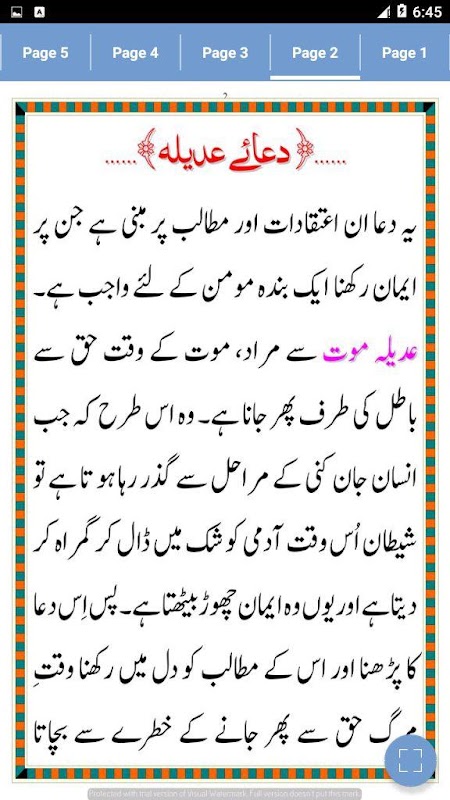 6:45
Page 5 Page 4 Page 3 Page 2 Page 1
2
......﴿دعائے عدیلہ﴾......
یہ دعا ان اعتقادات اور مطالب پر مبنی ہے جن پر
ایمان رکھنا ایک بندہ مومن کے لئے واجب ہے۔
عدیلہ موت سے مراد، موت کے وقت حق سے
باطل کی طرف پھر جانا ہے۔ وہ اس طرح کہ جب
انسان جان کنی کے مراحل سے گذر رہا ہوتا ہے تو
شیطان اُس وقت آدمی کو شک میں ڈال کر گمراہ کر
دیتا ہے اور یوں وہ ایمان چھوڑ بیٹھتا ہے۔ پس اِس دعا
کا پڑھنا اور اس کے مطالب کو دل میں رکھنا وقتِ
مرگ حق سے پھر جانے کے خطرے سے بچاتا
Protected with trial version of Visual Watermark. Full version doesn't put this mark.